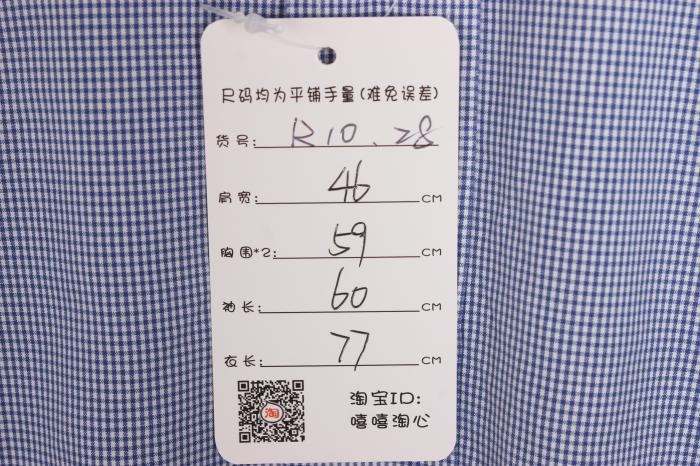 尺码均为平铺手量(难免误差)
货号: R10.28
肩宽: 46 CM
胸围*2: 59 CM
袖长: 60 CM
衣长: 77 CM
淘
淘宝ID:
嘻嘻淘心